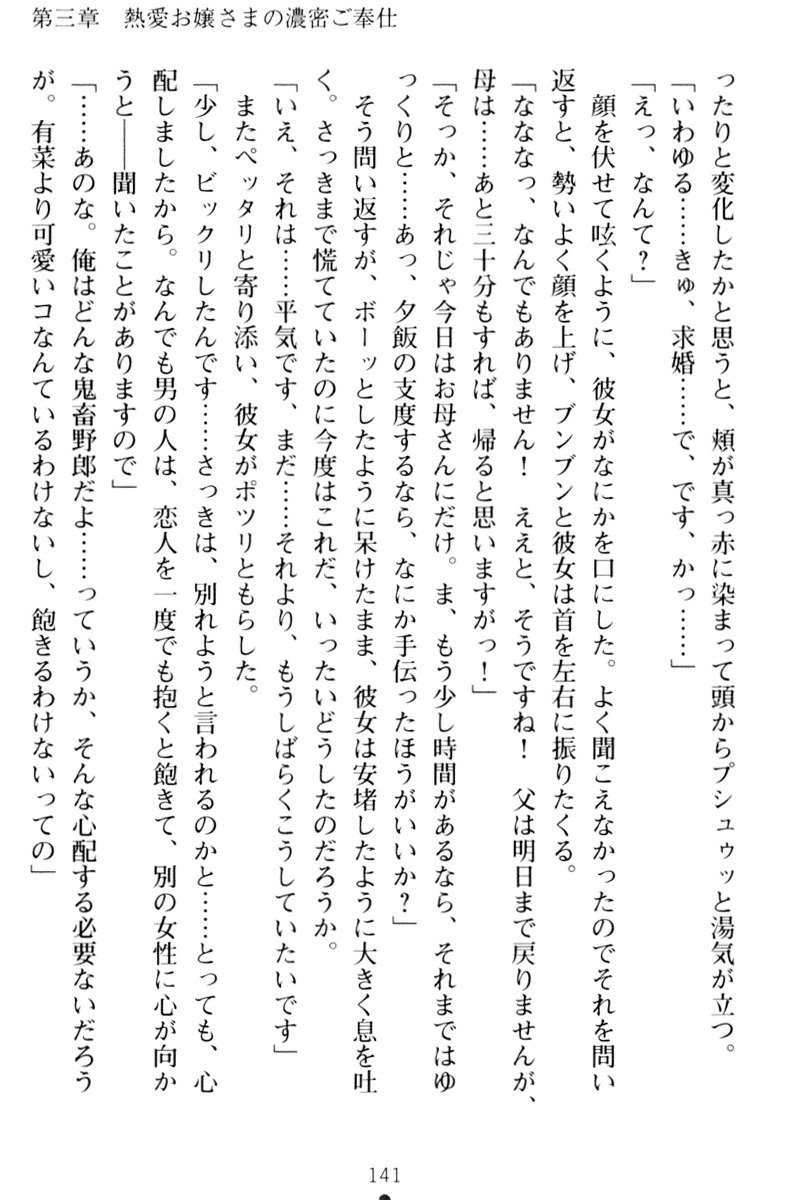 第三章　熱愛お嬢さまの濃密ご奉仕
ったりと変化したかと思うと、頬が真っ赤に染まって頭からプシュゥッと湯気が立つ。
「いわゆる……きゅ、求婚……で、です、かっ……」
「えっ、なんて？」
　顔を伏せて呟くように、彼女がなにかを口にした。よく聞こえなかったのでそれを問い
返すと、勢いよく顔を上げ、ブンブンと彼女は首を左右に振りたくる。
「なななっ、なんでもありません！　ええと、そうですね！　父は明日まで戻りませんが、
母は……あと三十分もすれば、帰ると思いますがっ！」
「そっか、それじゃ今日はお母さんにだけ。ま、もう少し時間があるなら、それまではゆ
っくりと……あっ、夕飯の支度するなら、なにか手伝ったほうがいいか？」
　そう問い返すが、ボーッとしたように呆けたまま、彼女は安堵したように大きく息を吐
く。さっきまで慌てていたのに今度はこれだ、いったいどうしたのだろうか。
「いえ、それは……平気です、まだ……それより、もうしばらくこうしていたいです」
　またペッタリと寄り添い、彼女がポツリともらした。
「少し、ビックリしたんです……さっきは、別れようと言われるのかと……とっても、心
配しましたから。なんでも男の人は、恋人を一度でも抱くと飽きて、別の女性に心が向か
うと――聞いたことがありますので」
「……あのな。俺はどんな鬼畜野郎だよ……っていうか、そんな心配する必要ないだろう
が。有菜より可愛いコなんているわけないし、飽きるわけないっての」
141